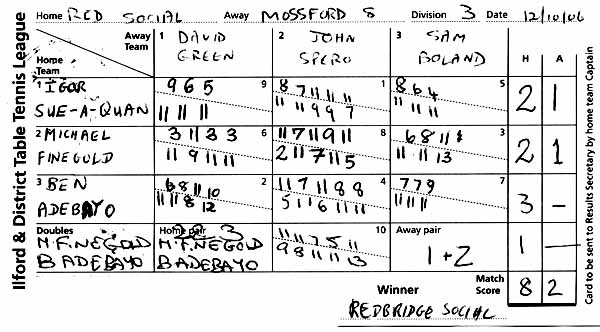 Ilford & District Table Tennis League
Home RED SOCIAL Away MOSSFORD 8 Division 3 Date 12/10/06
Away Team
Home Team
1 DAVID GREEN
2 JOHN SPERO
3 SAM BOLAND
H A
1 IGOR SUE-A-QUAN
9 6 5 9
11 11 11
8 7 11 11 11 1
11 11 9 9 7
8 6 4 5
11 11 11
2 1
2 MICHAEL FINEGOLD
3 11 3 3 6
11 9 11 11
11 7 11 9 11 8
2 11 7 11 5
6 8 11 3
11 11 13
2 1
3 BEN ADEBAYO
6 8 11 10 2
11 11 8 12
11 7 11 8 8 4
5 11 6 11 11
7 7 9 7
11 11 11
3 -
Doubles
M. FINEGOLD
B ADEBAYO
Home pair
2 & 3
M. FINEGOLD
B ADEBAYO
11 11 7 5 11 10
9 8 11 11 13
Away pair
1 + 2
1 -
Winner
Match Score
8 2
REDBRIDGE SOCIAL
Card to be sent to Results Secretary by home team Captain